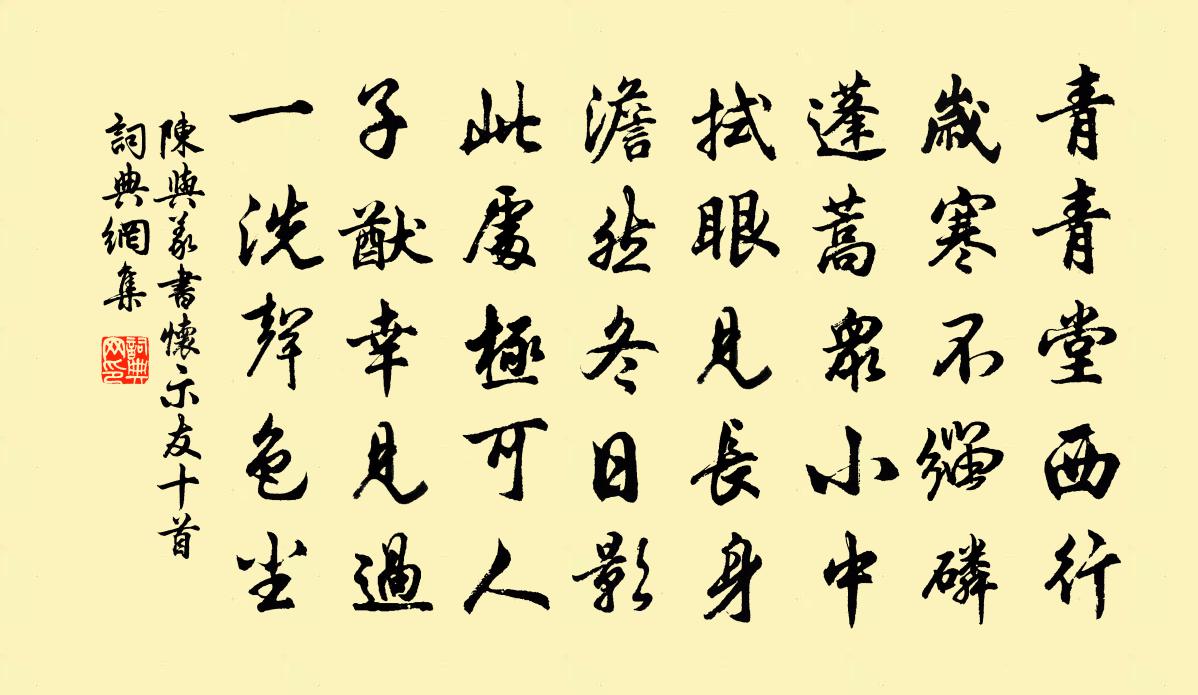 青青堂西竹
歲寒不緇磷
蓬蒿眾小中
拭眼見長身
澹然冬日影
此處極可人
子猷幸見過
一洗聲色塵
陳與義書懷示友十首
詞典網集
詞典网印